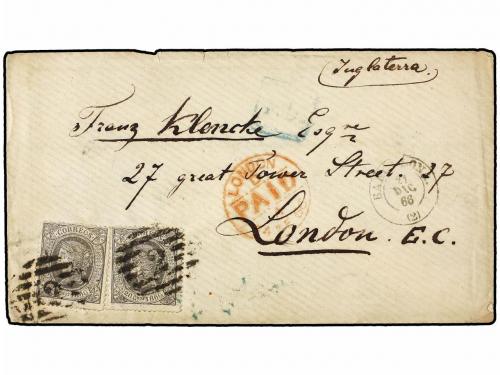 (Inglaterra.)
Franz Klencke Esqre
27 great Tower Street. 27
London. E.C.
LONDON
PAID
DIC
66
(2)
CORREOS